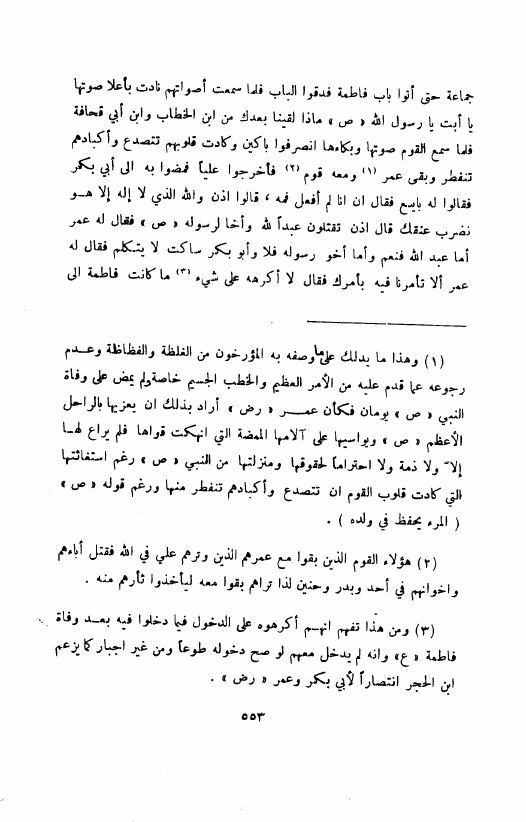 جماعة حتى أتوا باب فاطمة فدقوا الباب فلما سمعت أصواتهم نادت بأعلا صوتها
يا أبت يا رسول الله « ص » ماذا لقينا بعدك من ابن الخطاب وابن أبي قحافة
فلما سمع القوم صوتها وبكاءها انصرفوا باكين وكادت قلوبهم تتصدع وأكبادهم
تنفطر وبقى عمر (١) ومعه قوم (٢) فأخرجوا علياً فمضوا به الى أبي بكر
فقالوا له بايع فقال ان انا لم أفعل فمه ، قالوا اذن والله الذي لا إله إلا هـو
نضرب عنقك قال اذن تقتلون عبداً لله وأخا لرسوله « ص » فقال له عمر
أما عبد الله فنعم وأما أخو رسوله فلا وأبو بكر ساكت لا يتكلم فقال له
عمر ألا تأمرنا فيه بأمرك فقال لا أكرهه على شيء (٣) ما كانت فاطمة الى
(١) وهذا ما يدلك على ما وصفه به المؤرخون من الغلظة والفظاظة وعـدم
رجوعه عما قدم عليه من الأمر العظيم والخطب الجسيم خاصة ولم يمض على وفاة
النبي « ص » يومان فكأن عمـــر « رض » أراد بذلك ان يعزيها بالراحل
الأعظم « ص » ويواسيها على آلامها الممضة التي انهكت قواها فلم يراع لهـا
إلاّ ولا ذمة ولا احتراماً لحقوقها ومنزلتها من النبي « ص » رغم استغاثتها
التي كادت قلوب القوم ان تتصدع وأكبادهم تنفطر منها ورغم قوله « ص »
( المرء يحفظ في ولده ) .
(٢) هؤلاء القوم الذين بقوا مع عمرهم الذين وترهم علي في الله فقتل أباءهم
واخوانهم في أحد وبدر وحنين لذا تراهم بقوا معه ليأخذوا ثأرهم منه .
(٣) ومن هذا تفهم انهـم أكرهوه على الدخول فيما دخلوا فيه بعـد وفاة
فاطمة « ع » وانه لم يدخل معهم لو صح دخوله طوعاً ومن غير اجبار كما يزعم
ابن الحجر انتصاراً لأبي بكر وعمر « رض » .
٥٥٣